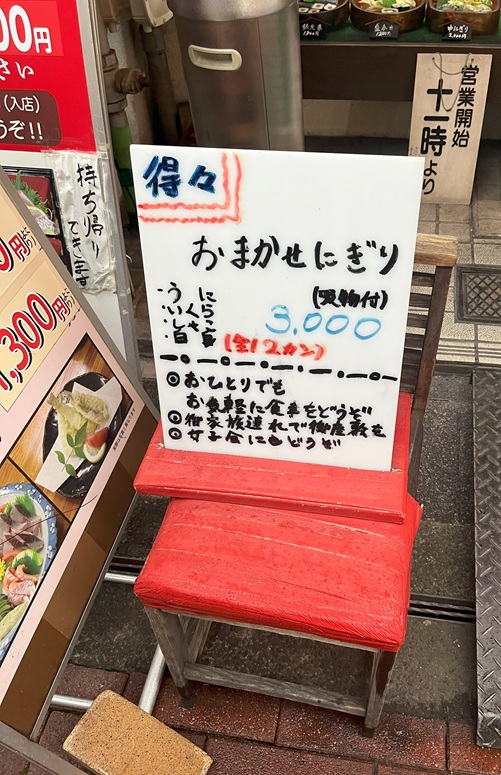 00円
さい
（入店）
うぞ!!
持ち帰り
できます
1,300円
営業開始
十一時より
得々
おまかせにぎり
（吸物付）
・うに
・いくら
3,000
（全12カン）
◎おひとりでも
お気軽に食事をどうぞ
◎御家族連れで御座敷を
◎女子会にもどうぞ